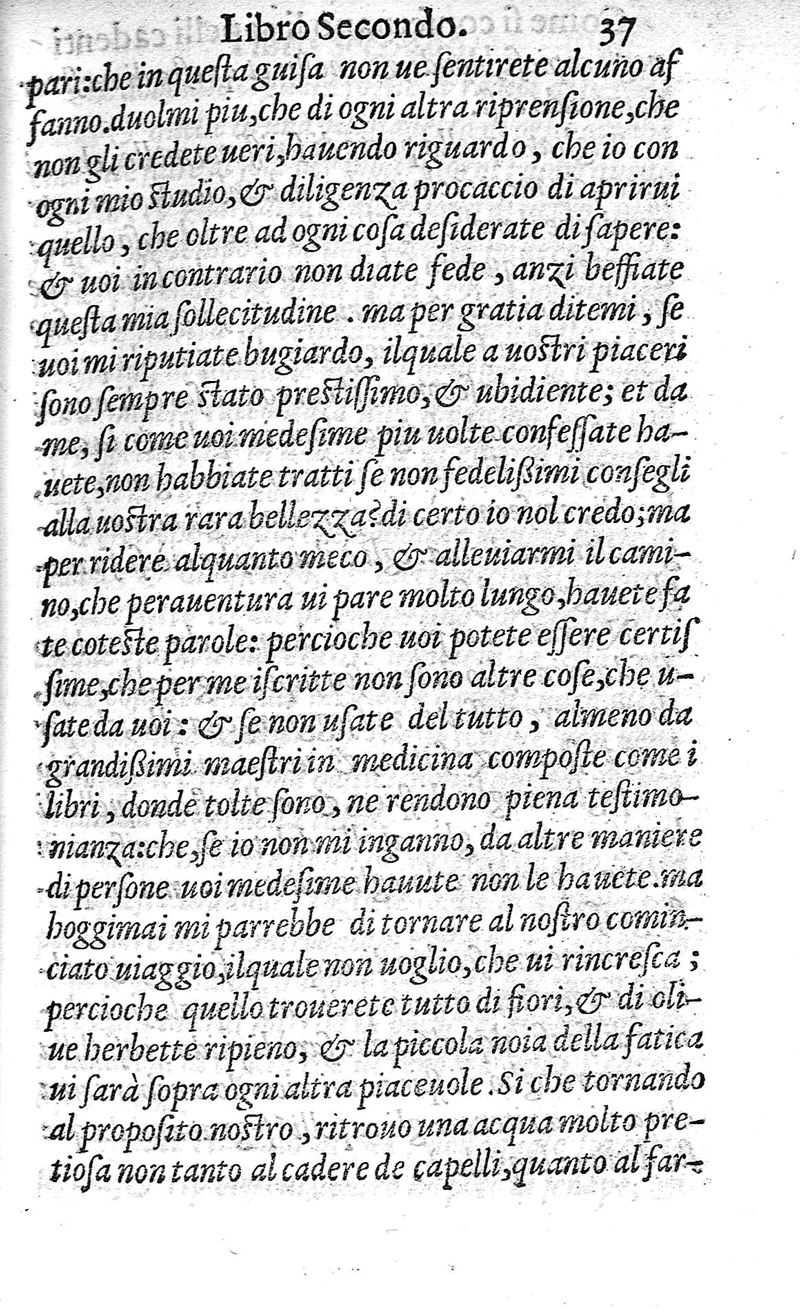 Libro Secondo. 37
pari:che in queſta guiſa non ue ſentirete alcuno af
fanno.duolmi piu,che di ogni altra riprenſione,che
non gli credete ueri,hauendo riguardo, che io con
ogni mio ſtudio,& diligenza procaccio di aprirui
quello, che oltre ad ogni coſa deſiderate di ſapere:
& uoi in contrario non diate fede, anzi beffiate
queſta mia ſollecitudine. ma per gratia ditemi, ſe
uoi mi riputiate bugiardo, ilquale a uoſtri piaceri
ſono ſempre ſtato preſtiſſimo,& ubidiente; et da
me, ſi come uoi medeſime piu uolte confeſſate ha-
uete,non habbiate tratti ſe non fedelißimi conſegli
alla uoſtra rara bellezza?di certo io nol credo;ma
per ridere alquanto meco, & alleuiarmi il cami-
no,che perauentura ui pare molto lungo,hauete fa
te coteſte parole: percioche uoi potete eſſere certiſ
ſime,che per me iſcritte non ſono altre coſe,che u-
ſate da uoi: & ſe non uſate del tutto, almeno da
grandißimi maeſtri in medicina compoſte come i
libri, donde tolte ſono, ne rendono piena teſtimo-
nianza:che,ſe io non mi inganno, da altre maniere
di perſone uoi medeſime hauute non le hauete.ma
hoggimai mi parrebbe di tornare al noſtro comin-
ciato uiaggio,ilquale non uoglio,che ui rincreſca;
percioche quello trouerete tutto di fiori,& di oli-
ue herbette ripieno, & la piccola noia della fatica
ui ſarà ſopra ogni altra piaceuole.Si che tornando
al propoſito noſtro, ritrouo una acqua molto pre-
tioſa non tanto al cadere de capelli,quanto al far-